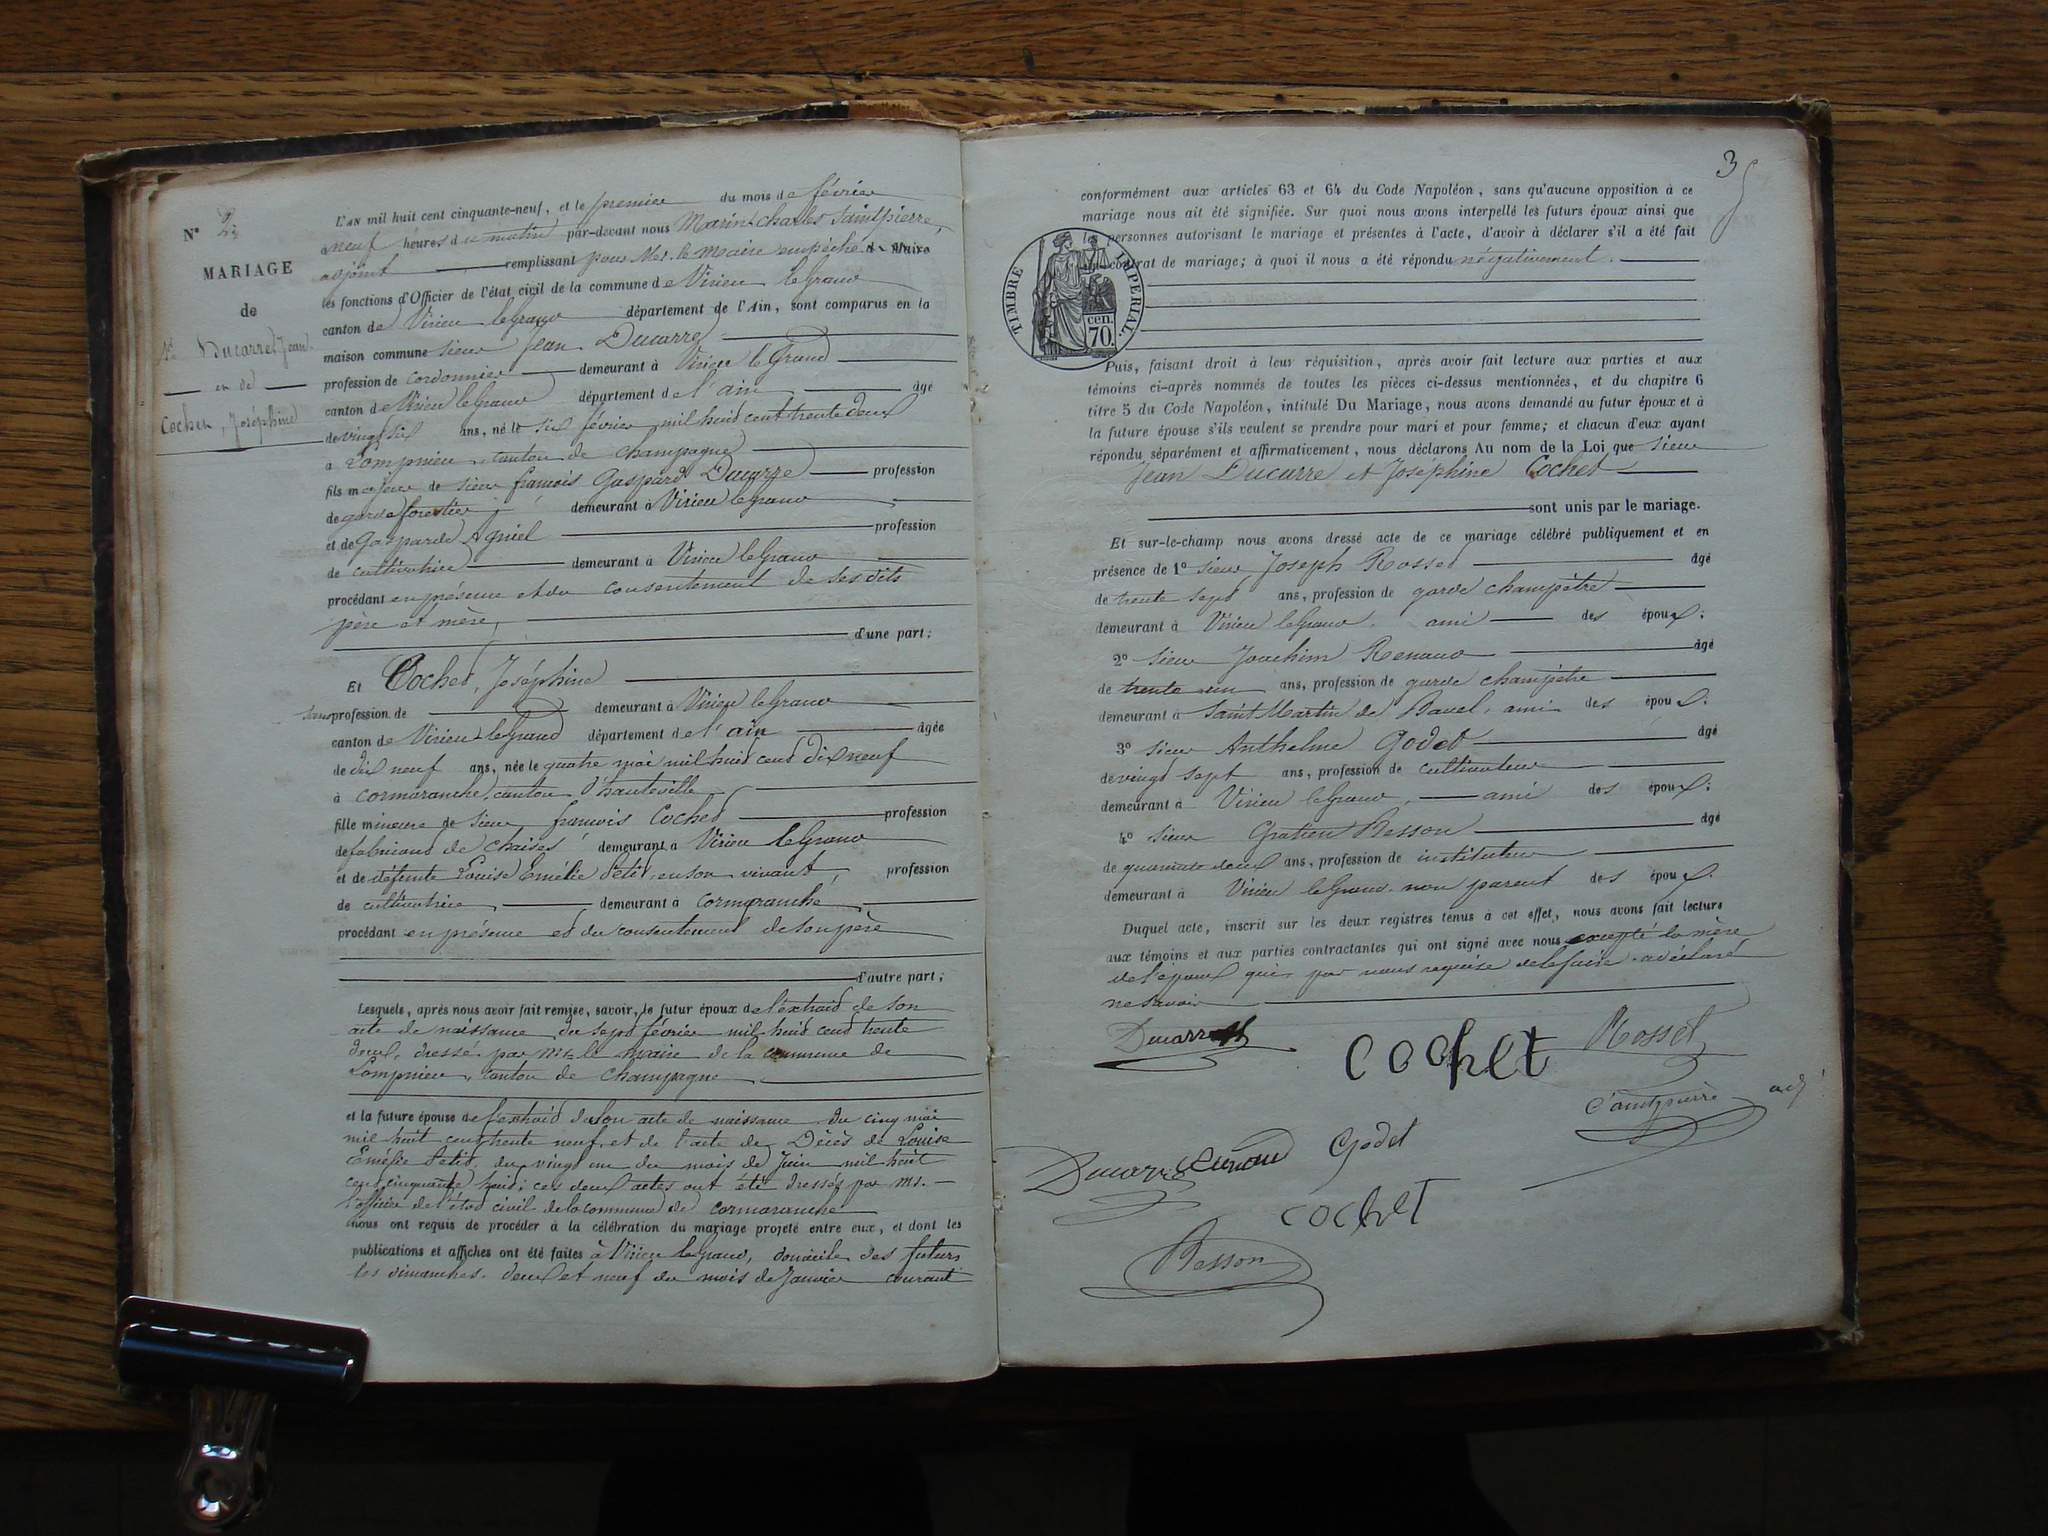 N° 2
MARIAGE
de
Ducarre, Jean
et de
Cochet, Joséphine
L'AN mil huit cent cinquante-neuf, et le premier du mois de février
à neuf heures du matin par-devant nous Marin-Charles Saintpierre,
adjoint remplissant pour Mr. le Maire empêché
les fonctions d'Officier de l'état civil de la commune de Virieu le Grand
canton de Virieu le Grand département de l'Ain, sont comparus en la
maison commune sieur Jean Ducarre
profession de cordonnier demeurant à Virieu le Grand
canton de Virieu le Grand département de l'ain âgé
de vingt six ans, né le six février mil huit cent trente deux
à Lompnieu, canton de Champagne
fils majeur de sieur françois Gaspard Ducarre profession
de garde forestier demeurant à Virieu le grand
et de Gasparde Agniel profession
de cultivatrice demeurant à Virieu le Grand
procédant en présence et du consentement de ses dits
père et mère,
d'une part;
Et Cochet, Joséphine
sans profession de demeurant à Virieu le Grand
canton de Virieu le Grand département de l'ain âgée
de dix neuf ans, née le quatre mai mil huit cent dix neuf
à cormaranche, canton d'hauteville
fille mineure de sieur françois Cochet profession
de fabricant de chaises demeurant à Virieu le Grand
et de défunte Louise Emélie Petit, en son vivant, profession
de cultivatrice, demeurant à cormaranche,
procédant en présence et du consentement de son père
d'autre part;
Lesquels, après nous avoir fait remise, savoir, le futur époux de l'extrait de son
acte de naissance du sept février mil huit cent trente
deux, dressé par Mr le maire de la commune de
Lompnieu, canton de Champagne
et la future épouse de l'extrait de son acte de naissance du cinq mai
mil huit cent trente neuf, et de l'acte de Décès de Louise
Emélie Petit, du vingt un du mois de Juin mil huit
cent cinquante huit; ces deux actes ont été dressés par Mr.
l'officier de l'état civil de la commune de cormaranche
nous ont requis de procéder à la célébration du mariage projeté entre eux, et dont les
publications et affiches ont été faites à Virieu le Grand, domicile des futurs
les dimanches deux et neuf du mois de Janvier courant
3
conformément aux articles 63 et 64 du Code Napoléon, sans qu'aucune opposition à ce
mariage nous ait été signifiée. Sur quoi nous avons interpellé les futurs époux ainsi que
les personnes autorisant le mariage et présentes à l'acte, d'avoir à déclarer s'il a été fait
un contrat de mariage; à quoi il nous a été répondu négativement.
TIMBRE IMPERIAL.
cen.
70.
Puis, faisant droit à leur réquisition, après avoir fait lecture aux parties et aux
témoins ci-après nommés de toutes les pièces ci-dessus mentionnées, et du chapitre 6
titre 5 du Code Napoléon, intitulé Du Mariage, nous avons demandé au futur époux et à
la future épouse s'ils veulent se prendre pour mari et pour femme; et chacun d'eux ayant
répondu séparément et affirmativement, nous déclarons Au nom de la Loi que sieur
Jean Ducarre et Joséphine Cochet
sont unis par le mariage.
Et sur-le-champ nous avons dressé acte de ce mariage célébré publiquement et en
présence de 1° sieur Joseph Rosset âgé
de trente sept ans, profession de garde champêtre
demeurant à Virieu le Grand, ami des époux;
2° sieur Joachim Renaud âgé
de trente un ans, profession de garde champêtre
demeurant à Saint Martin de Bavel, ami des époux.
3° sieur Anthelme Godet âgé
de vingt sept ans, profession de cultivateur
demeurant à Virieu le Grand, ami des époux;
4° sieur Gratien Besson âgé
de quarante deux ans, profession de instituteur
demeurant à Virieu le Grand, non parent des époux.
Duquel acte, inscrit sur les deux registres tenus à cet effet, nous avons fait lecture
aux témoins et aux parties contractantes qui ont signé avec nous excepté la mère
de l'époux qui, par nous requise de le faire, a déclaré
ne savoir
Ducarre
cochet
Rosset
Saintpierre adj
Ducarre Renaud Godet
cochet
Besson